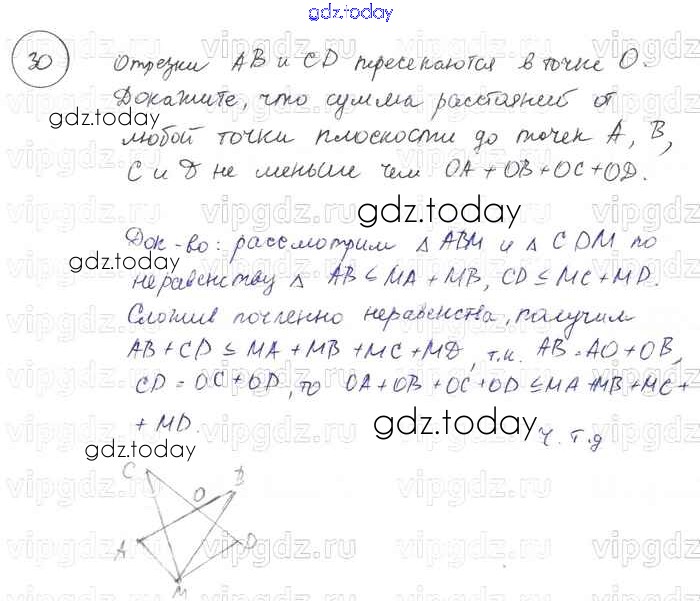 gdz.today
30 Отрезки AB и CD пересекаются в точке O.
Докажите, что сумма расстояний от
gdz.today
любой точки плоскости до точек A, B,
C и D не меньше чем OA + OB + OC + OD.
gdz.today
Док-во: рассмотрим △ ABM и △ CDM по
gdz.today
неравенству △ AB ≤ MA + MB, CD ≤ MC + MD.
Сложив почленно неравенства, получим
AB + CD ≤ MA + MB + MC + MD, т.к. AB = AO + OB,
CD = OC + OD, то OA + OB + OC + OD ≤ MA + MB + MC +
+ MD.
gdz.today
ч.т.д
gdz.today
C
O
B
A
D
M
vipgdz.ru